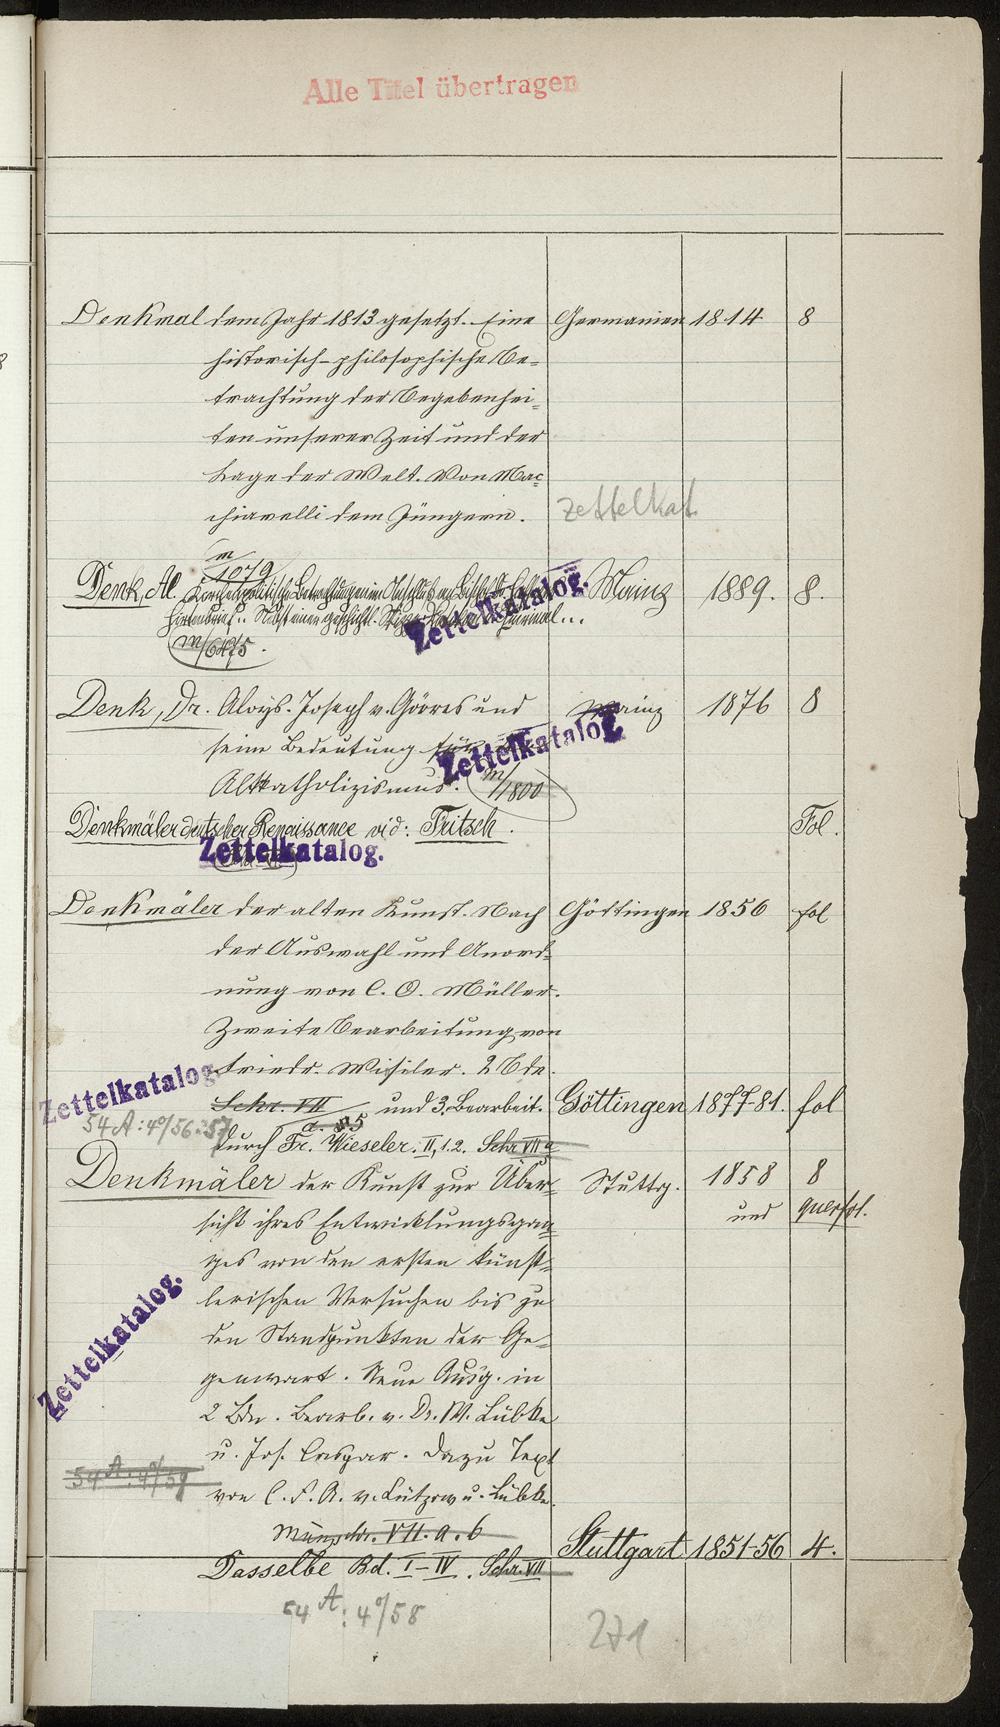 Alle Titel übertragen
Denkmal dem Jahr 1813 gesetzt. Eine Germanien 1814 8
historisch-philosophische Be-
trachtung der Begebenhei-
ten unserer Zeit und der
Lage der Welt. Von Mac-
chiavelli dem Jüngern. Zettelkat.
m/1079
Denk, Al. Kirchenpolitische Betrachtungen im Anschluß an Bischof Mainz 1889. 8.
Hirtenbrief.. Nebst einem geschichtl.
Zettelkatalog.
m/6475.
Denk, Dr. Aloys. Joseph v. Görres und Mainz 1876 8
seine Bedeutung für
Zettelkatalog
Altkatholizismus. m/1800
Denkmäler deutscher Renaissance vid: Fritsch. Fol.
Zettelkatalog.
Denkmäler der alten Kunst. Nach Göttingen 1856 fol
der Auswahl und Anord-
nung von C. O. Müller.
Zweite Bearbeitung von
Friedr. Wieseler. 2 Bde.
Zettelkatalog.
Schr. VII und 3. Bearbeit. Göttingen 1877-81. fol
54 A: 4°/56.57
durch Fr. Wieseler. II, 1.2. Schr VII a
Denkmäler der Kunst zur Über- Stuttg. 1858 8
sicht ihres Entwicklungsgan- und querfol.
ges von den ersten künst-
lerischen Versuchen bis zu
den Standpunkten der Ge-
genwart. Neue Ausg. in
Zettelkatalog.
2 Bdn. Bearb. v. Dr. W. Lübke
u. Jos. Caspar. Dazu Text
54 A: 4°/59
von C. F. A. v. Lützow u. Lübke.
Münzschr. VII. a. b
Stuttgart 1851-56 4.
Dasselbe Bd. I-IV. Schr. VII
54 A: 4°/58
271